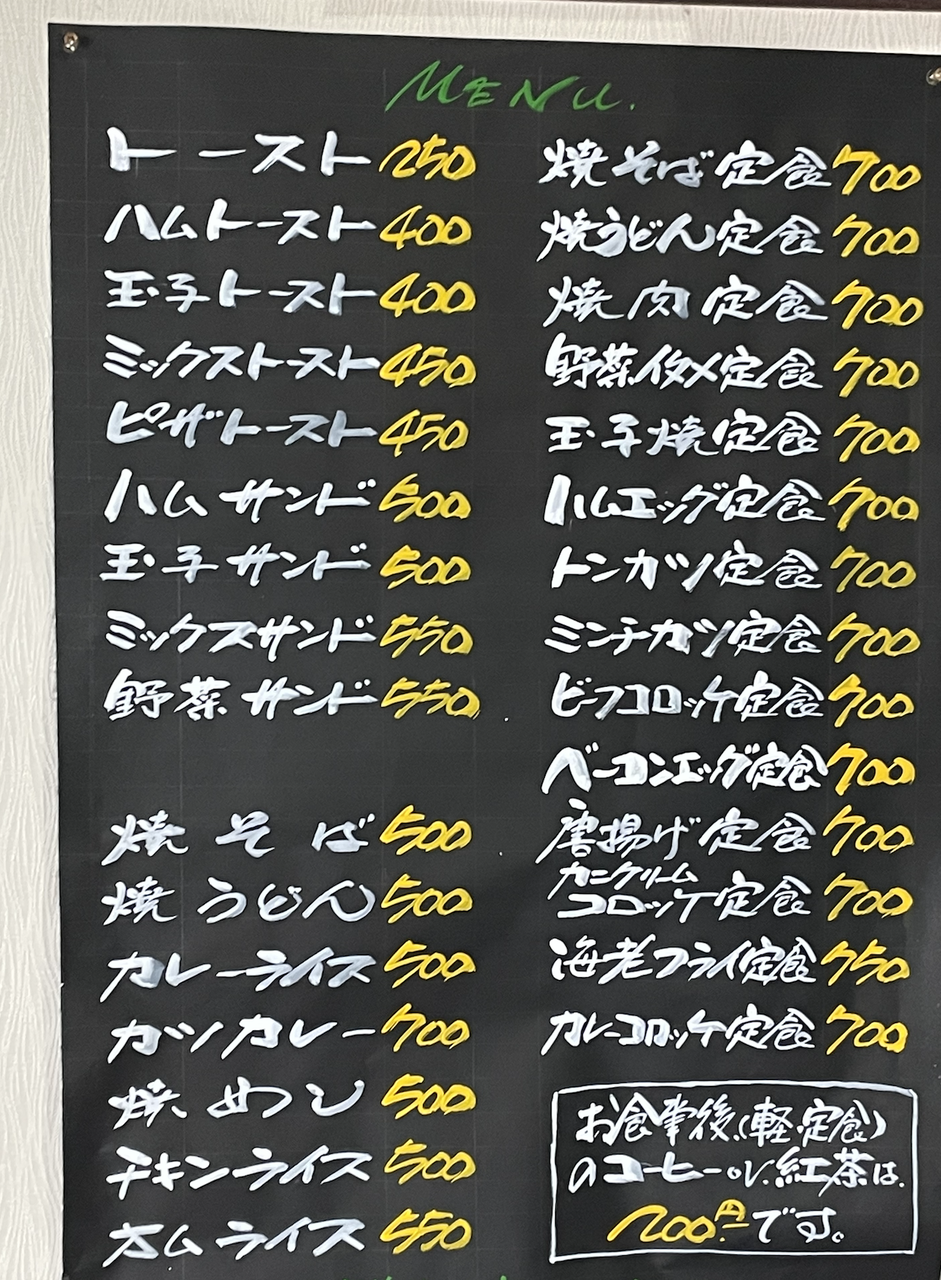 MENU.
トースト 250
ハムトースト 400
玉子トースト 400
ミックストースト 450
ピザトースト 450
ハムサンド 500
玉子サンド 500
ミックスサンド 550
野菜サンド 550
焼そば 500
焼うどん 500
カレーライス 500
カツカレー 700
焼めし 500
チキンライス 500
オムライス 550
焼そば定食 700
焼うどん定食 700
焼肉定食 700
野菜イタメ定食 700
玉子焼定食 700
ハムエッグ定食 700
トンカツ定食 700
ミンチカツ定食 700
ビーフコロッケ定食 700
ベーコンエッグ定食 700
唐揚げ定食 700
カニクリム
コロッケ定食 700
海老フライ定食 750
カレーコロッケ定食 700
お食事後、(軽・定食)
のコーヒーor紅茶は、
200円です。